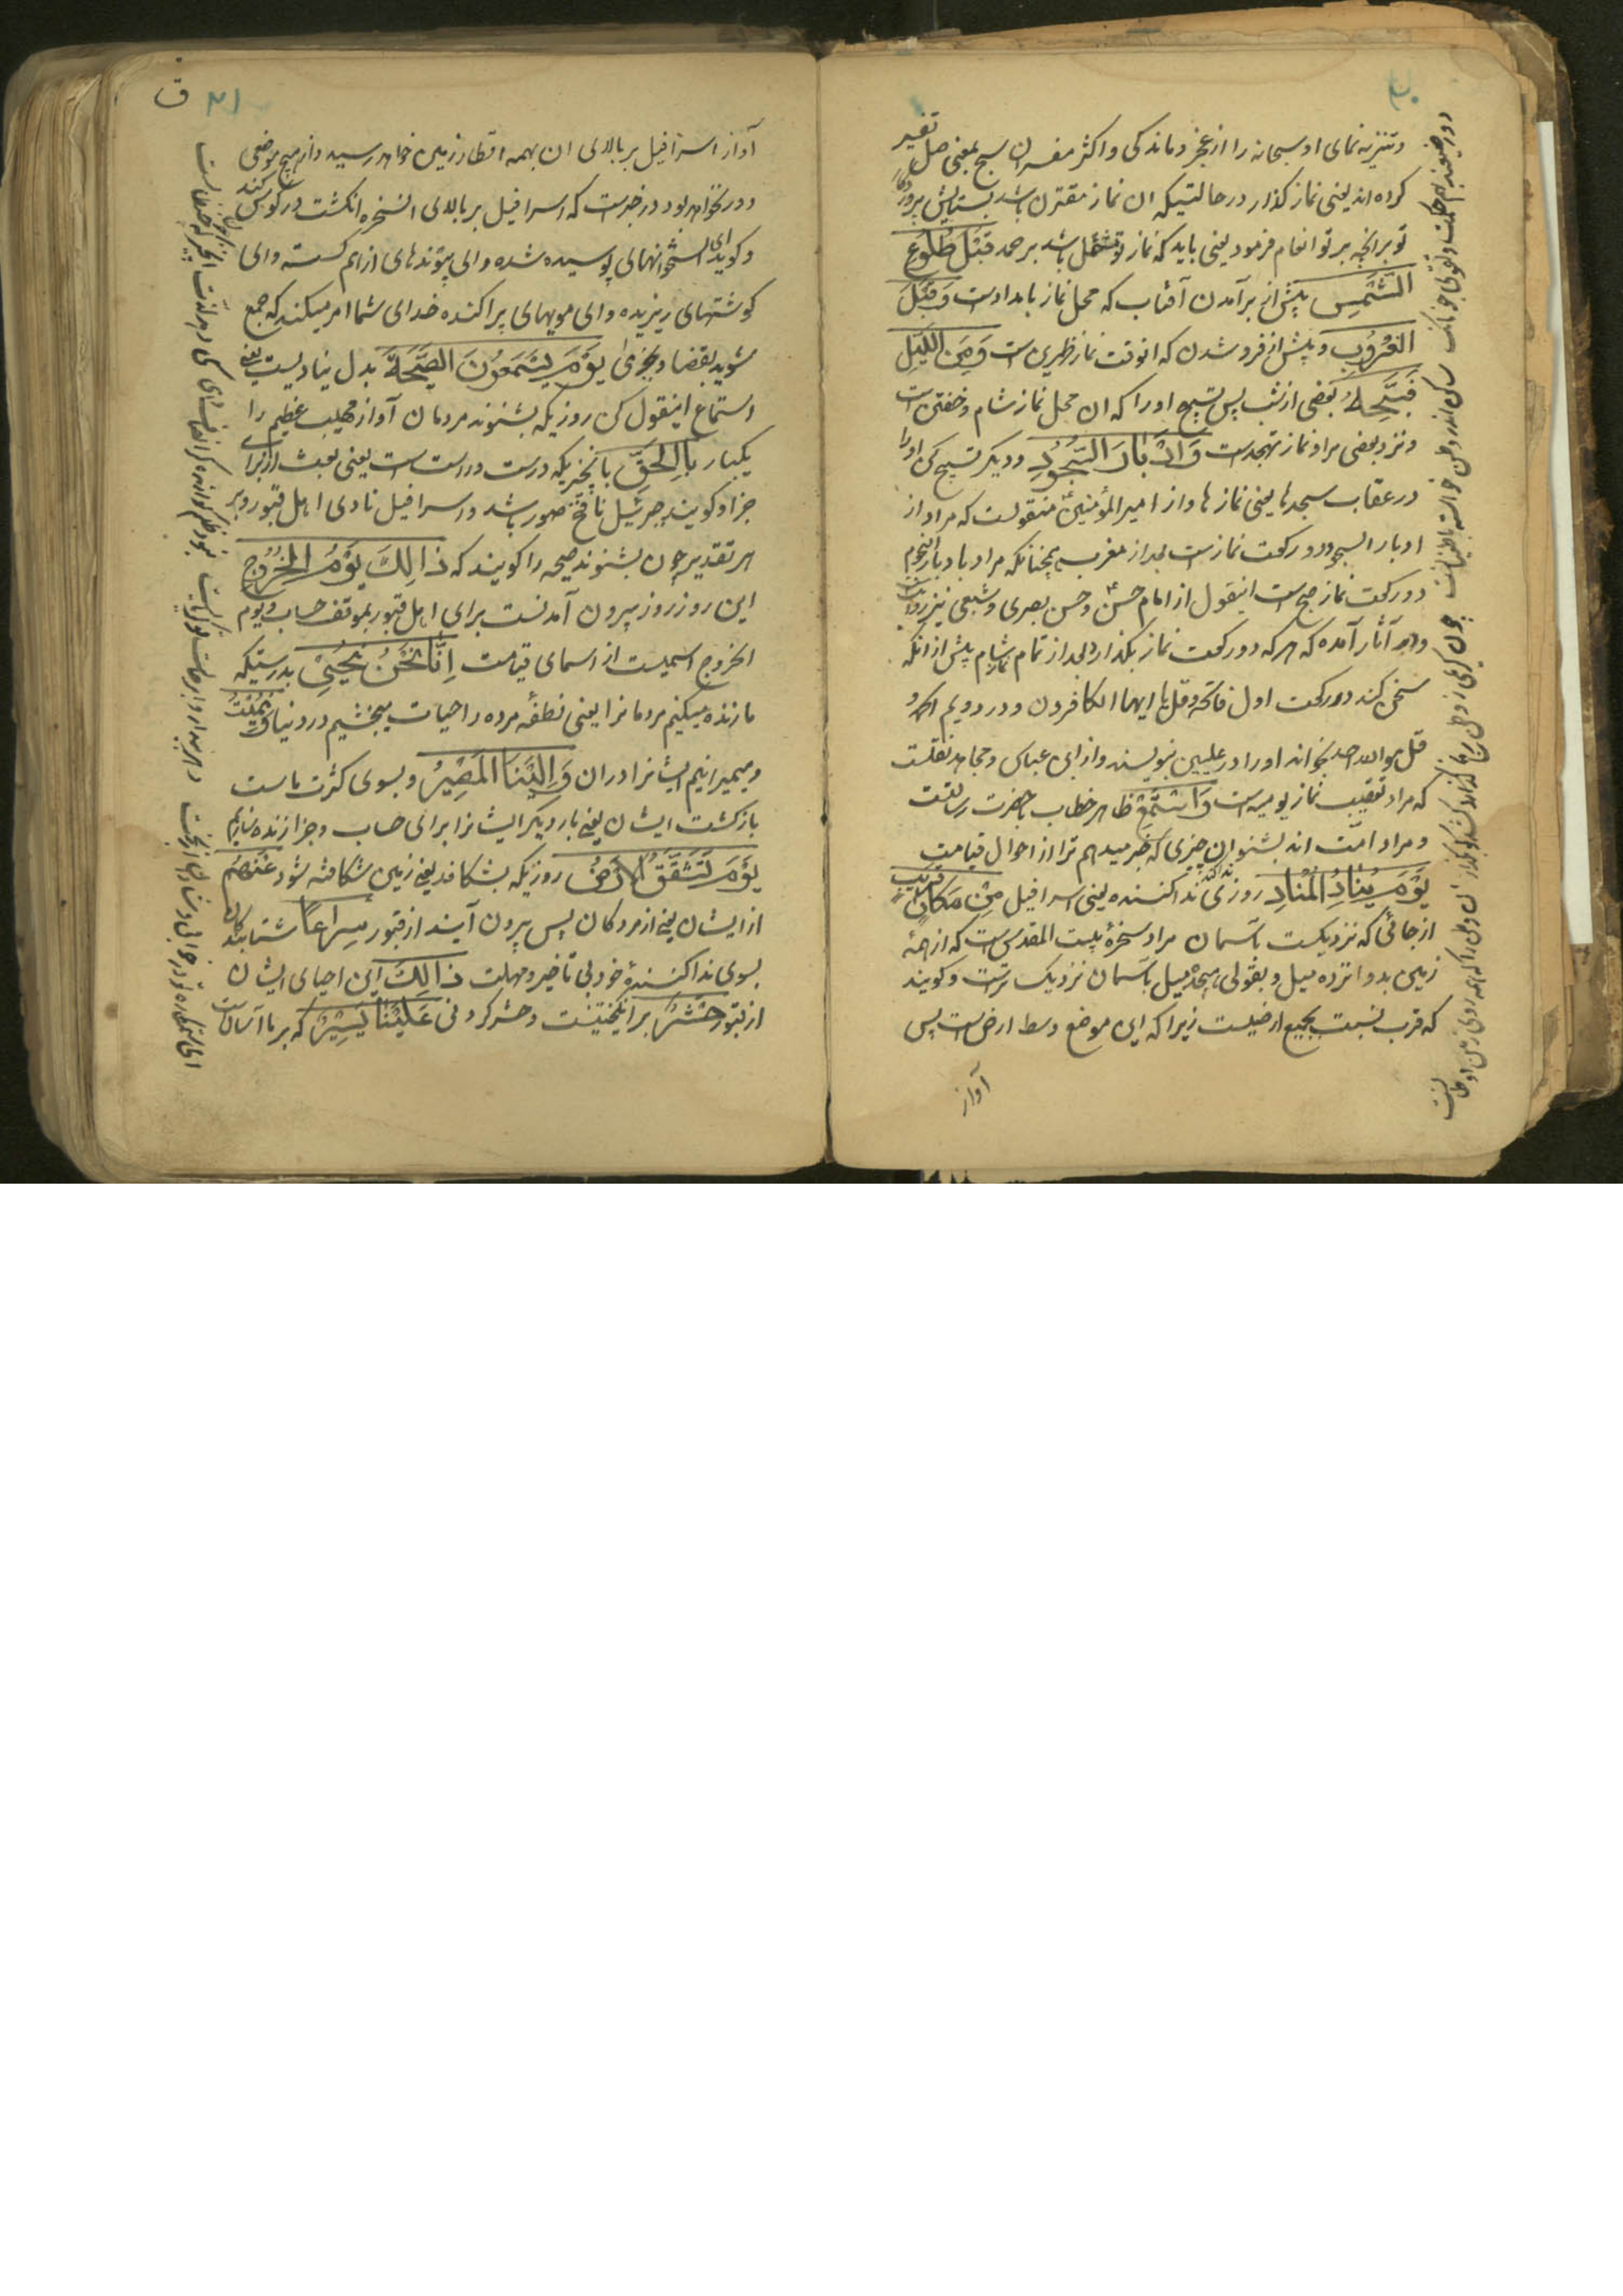 و تنزیه نمای او سبحانه را از عجز و ماندکی و اکثر مفسران سبح بمعنی صل تفسیر
کرده اند یعنی نماز کذار در حالتیکه ان نماز مقترن باشد بستایش پروردکار
تو بر انچه بر تو انعام فرمود یعنی باید که نماز تو مشتمل باشد بر حمد قَبْلَ طُلُوعِ
الشَّمْسِ پیش از برآمدن آفتاب که محل نماز بامدادست وَ قَبْلَ
الغُرُوبِ و پیش از فرو شدن که انوقت نماز ظهرین است وَ مِنَ اللَّيْلِ
فَسَبِّحْهُ و بعضی از شب پس تسبیح او را که ان محل نماز شام و خفتن است
و نزد بعضی مراد نماز تهجدست وَ اَدْبَارَ السُّجُودِ و دیکر تسبیح کن او را
در عقاب سجدها یعنی نمازها و از امیر المؤمنین ع منقولست که مراد از
ادبار السجود دو رکعت نمازست بعد از مغرب همچنانکه مراد بادبار النجوم
دو رکعت نماز صبح است اینقول از امام حسن ع و حسن بصری و شعبی نیز روایتست
و در آثار آمده که هر که دو رکعت نماز بکذارد بعد از تمام نماز شام پیش از انکه
سخن کند در رکعت اول فاتحه و قل یا ایها الکافرون و در دویم الحمد و
قل هو الله احد بخواند او را در علیین بنویسند و از ابن عباس و مجاهد نقلست
که مراد تعقیب نماز یومیه است وَ اسْتَمِعْ ظاهر خطاب با حضرت رسالتست
و مراد امت اند بشنو ان چیزی که خبر میدهم ترا از احوال قیامت
يَوْمَ يُنَادِ المُنَادِ روزی که ندا کند ندا کننده یعنی اسرافیل مِنْ مَكَانٍ قَرِيبٍ
از جائی که نزدیکست باسمان مراد سخرۀ بیت المقدس است که از همۀ
زمین بدوانزده میل و بقولی بهیجده میل باسمان نزدیک ترست و کویند
که قرب نسبت بجمیع ارضیست زیرا که این موضع وسط ارض است پس
آواز
۲۱ ق
آواز اسرافیل بر بالای ان بهمه اقطار زمین خواهد رسید و از هیچ موضعی
دور نخواهد بود در خبرست که اسرافیل بر بالای انسخره انکشت در کوش کند
و کوید ای استخوانهای پوسیده شده و ای پیوندهای از هم کسسته و ای
کوشتهای ریزیده و ای مویهای پراکنده خدای شما امر میکند که جمع
شوید بقضا و جزئ يَوْمَ يَسْمَعُونَ الصَّيْحَةَ بدل ینادیست یعنی
استماع اینقول کن روزیکه بشنوند مردمان آواز مهیب عظیم را
یکبار بِالْحَقِّ بانچیزیکه درست و راست است یعنی بعث از برای
جزا و کویند جبرئیل نافخ صور باشد و اسرافیل نادی اهل قبور و بر
هر تقدیر چون بشنوند صیحه را کویند که ذَالِكَ يَوْمُ الخُرُوجِ
این روز روز بیرون آمدنست برای اهل قبور بموقف حساب و یوم
الخروج اسمیست از اسمای قیامت اِنَّا نَحْنُ نُحْيِيْ بدرستیکه
ما زنده میکنیم مردمانرا یعنی نطفه مرده را حیات میبخشیم در دنیا وَ نُمِيْتُ
و میمیرانیم ایشانرا دران وَ اِلَيْنَا المَصِيْرُ و بسوی کثرت ماست
بازکشت ایشان یعنی بار دیکر ایشانرا برای حساب و جزا زنده سازیم
يَوْمَ تَشَقَّقُ الاَرْضُ روزیکه بشکافد یعنی زمین شکافته شود عَنْهُمْ
از ایشان یعنی از مردکان پس بیرون آیند از قبور سِرَاعًا شتابندکان
بسوی ندا کنندۀ خود بی تاخیر و مهلت ذَالِكَ این احیای ایشان
از قبور حَشْرٌ برانکیختنیست و حشر کردنی عَلَيْنَا يَسِيْرٌ که بر ما آسانست